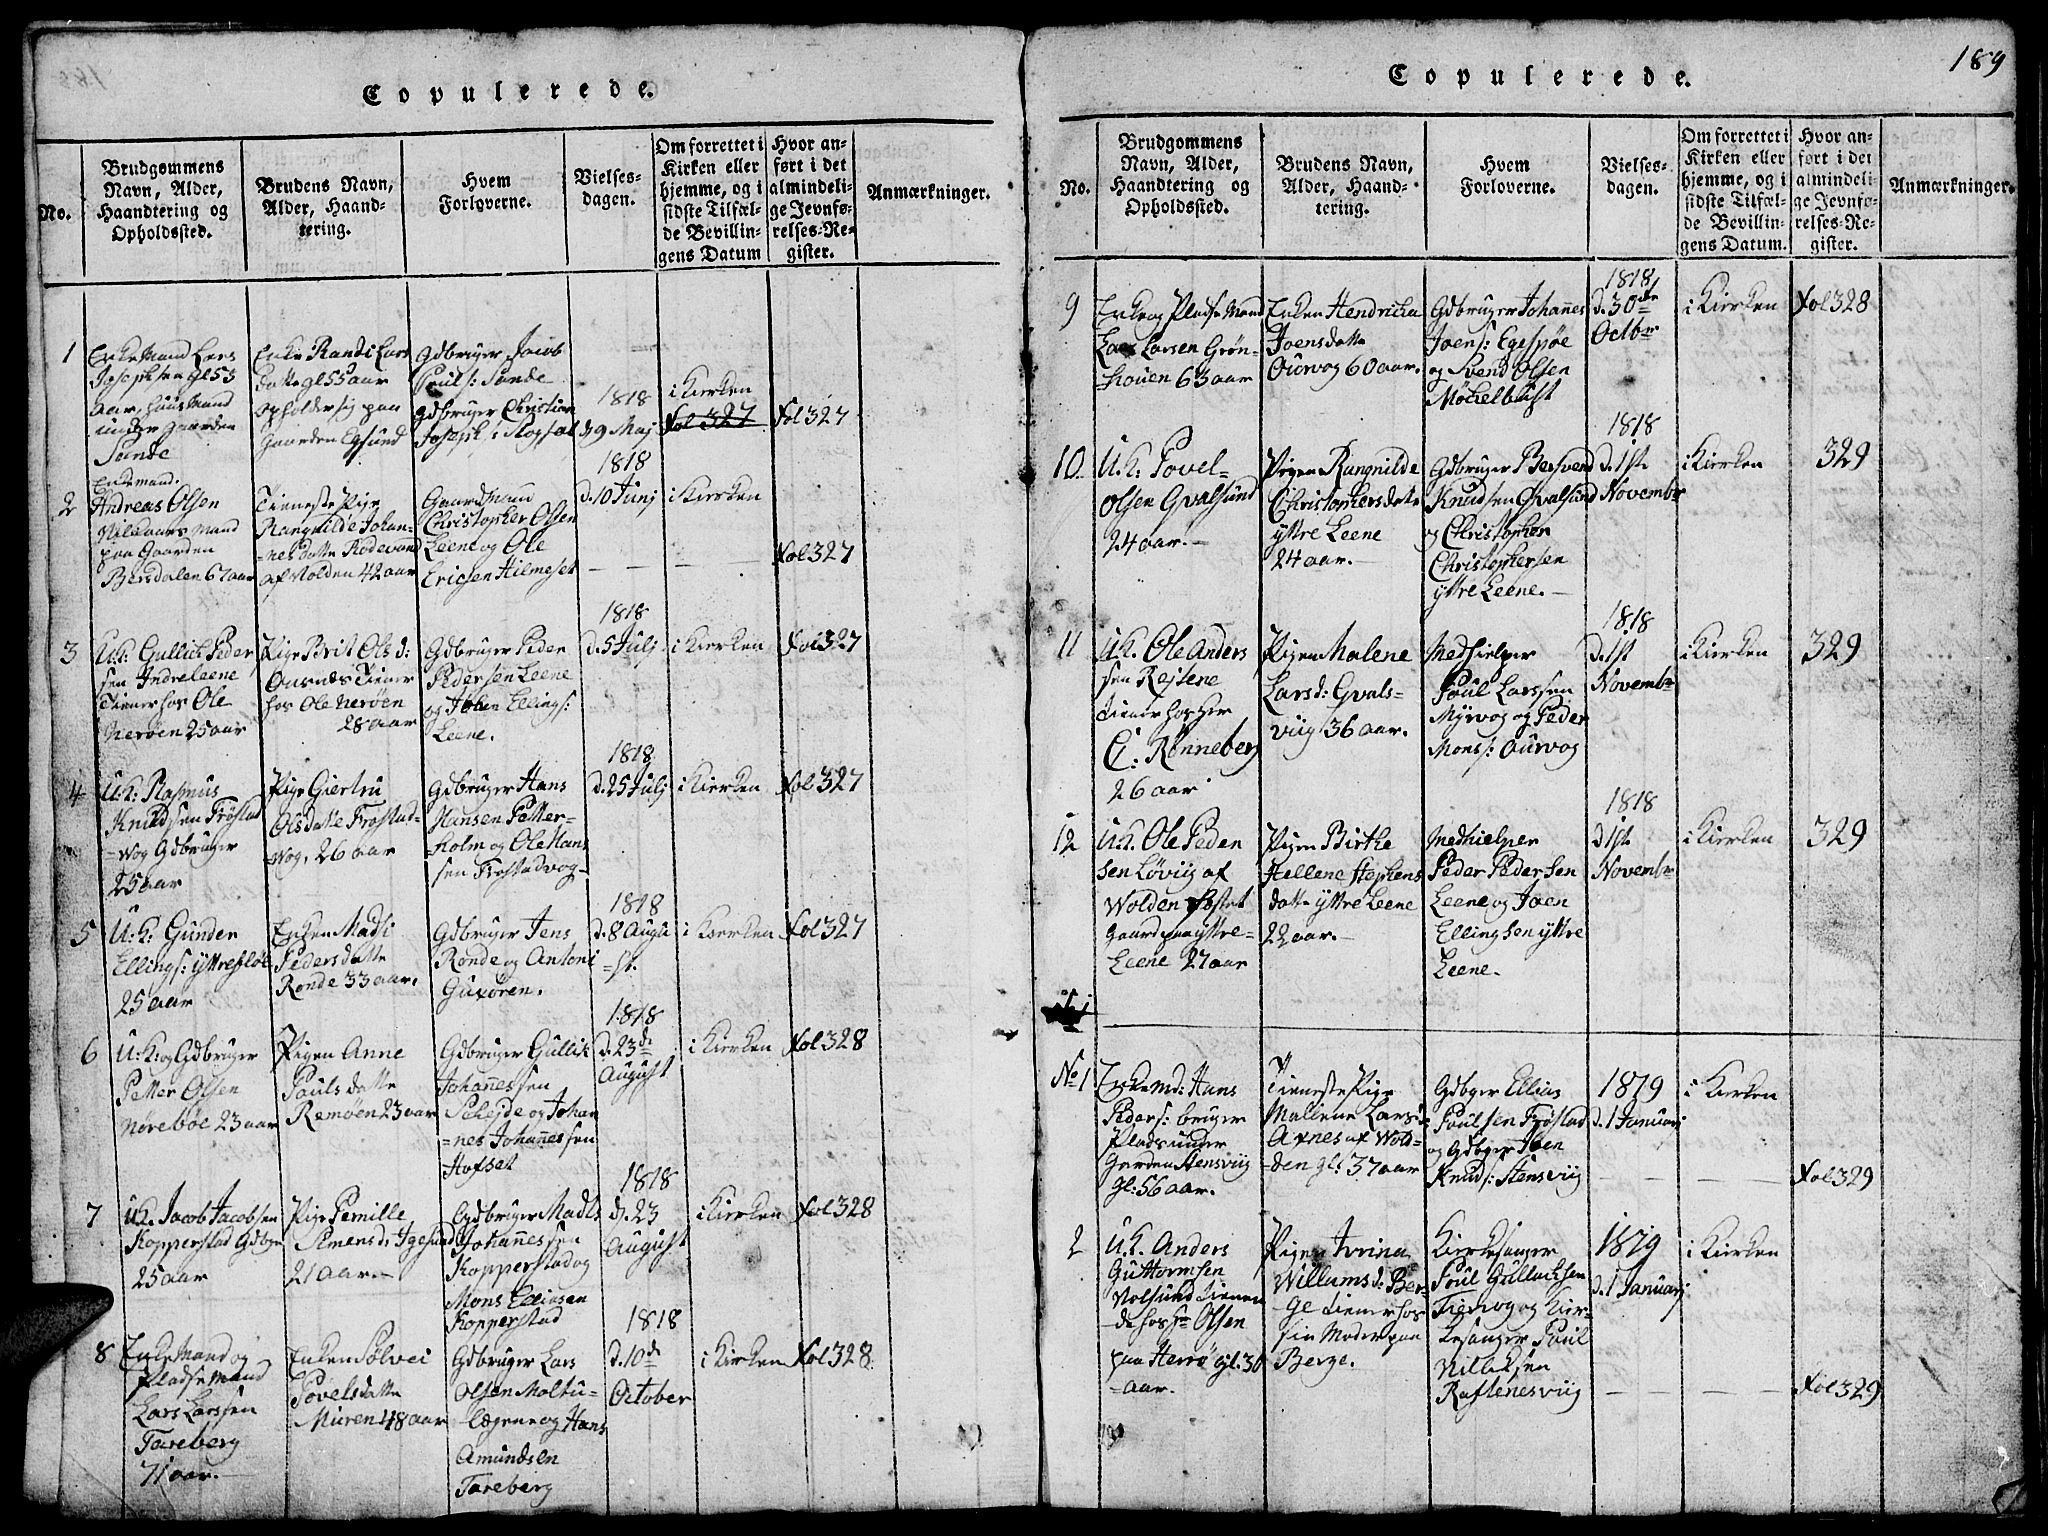 Copulerede.
No.
Brudgommens
Navn, Alder,
Haandtering og
Opholdssted.
Brudens Navn,
Alder, Haand-
tering.
Hvem
Forloverne.
Vielses-
dagen.
Om forrettet i
Kirken eller
hjemme, og i
sidste Tilfæl-
de Bevillin-
gens Datum
Hvor an-
ført i det
almindeli-
ge Jevnfø-
relses-Re-
gister.
Anmærkninger.
1
Enkemand Lars
Josephsen gl 53
aar, huusmand
under gaarden
Sande
Enke Randi Lars
datte gl 55 aar
opholder sig paa
gaarden Egsund
Gdbruger Jacob
Pouls: Sande
Gdbruger Christian
Joseph:
1818
d 9 Maj
i Kierken
Fol 327
Fol 327
2
Enkemand.
Andreas Olsen
mand
paa Gaarden
Bersdalen 67 aar
Tieneste Pige
Rangnilde Johan-
nesdatte Rødevand
af Volden 42 aar
Gaardmand
Christopher Olsen
Leene og Ole
Ericsen Hilmeset
1818
d. 10 Junj
i Kierken
Fol 327
3
U.K: Gullich Peder
sen Indreleene
Tiener hos Ole
Nerøen 25 aar
Pige Brit Ols d:
Ousnes Tiener
hos Ole Nerøen
28 aar
Gdbruger Peder
Pedersen Leene
og Johen Ellings:
Leene.
1818
d. 5 Julj
i Kierken
Fol 327
4
U.K: Rasmus
Knudsen Frøstad
=wog Gdbruger
25 aar
Pige Giertru
Olsdatte Frøstad-
wog, 26 aar
Gdbruger Hans
Hansen Petter-
holm og Ole Hans
sen Frøstadvog-
1818
d. 25 Julj
i Kierken
Fol 327
5
U.K: Gunder
Ellings: yttrefløe
25 aar
Enken Madli
Pedersdatte
Ronde 33 aar.
Gdbruger Jens
Ronde og Antoni
Guxøren.
1818
d. 8 Augu
=st.
i Kierken
Fol 327
6
U.K: og Gdbruger
Petter Olsen
Nørebøe 23 aar
Pigen Anne
Pouls datte
Remøen 23 aar
Gdbruger Gullik
Johannessen
og Johan
=nes Johannessen
Hofset
1818
d. 23de
August
i Kierken
Fol 328
7
U.K. Jacob Jacobsen
Kopperstad Gdbger
25 aar
Pige Pernille
Simensd: Igesund
21 Aar.-
Gdbruger Madls
Johannessen
Kopperstad og
Mons Elliasen
Kopperstad
1818
d. 23
August
i Kierken
Fol 328
8
Enkemand og
Pladsemand
Lars Larssen
Tareberg
71 aar.-
Enken Sølvei
Povelsdatte
Muren 48 aar
Gdbruger Lars
Olsen Moltu-
og Hans
Amundsen
Tareberg
1818
d. 10de
October
i Kierken
Fol 328
189
Copulerede.
No.
Brudgommens
Navn, Alder,
Haandtering og
Opholdssted.
Brudens Navn,
Alder, Haand-
tering.
Hvem
Forloverne.
Vielses-
dagen.
Om forrettet i
Kirken eller
hjemme, og i
sidste Tilfæl-
de Bevillin-
gens Datum.
Hvor an-
ført i det
almindeli-
ge Jevnfø-
relses-Re-
gister.
Anmærkninger.
9
Enke og Pladse Mand
Lars Larsen Grøn-
houen 63 aar
Enken Hendricka
Joensdatte
Ourvog 60 aar.
Gdbruger Johannes
Joens: Egespøe
og Svend Olsen
Møckelbust
1818
d. 30de
Octbr
i Kierken
Fol 328
10
U.K: Povel-
Olsen Gvalsund
24 aar.-
Pigen Rangnilde
Christophersdatte
yttre Leene
24 aar.-
Gdbruger Bersvend
Knudsen Qvalsund
og Christopher
Christophersen
yttre Leene.-
1818
d. 1st
Novembr
i Kierken
329
11
U.K. Ole Anders
sen Rejsene
tiener hos Hr
C: Rønneberg
26 aar
Pigen Malene
Larsd: Gvals-
viig 36 aar.
Medhielper
Poul Larssen
Myrvog og Peder
Mons: Ourvog
1818
d. 1st
Novembr
i Kierken
329
12
U.K. Ole Peder
sen Løviig af
Wolden
Gaard paa yttre-
Leene 27 aar
Pigen Birthe
Hellene Stephens
datte yttre Leene
22 aar.-
Medhielper
Peder Pedersen
Leene og Joen
Ellingsen yttre
Leene.
1818
d 1st
Novembr
i Kierken
329
No 1
Enkemd: Hans
Peders: bruger
Plads under
Gerden Stensviig
gl: 56 aar.
Tieneste Pige
Mallene Larsd:
Axnes af Wold-
den gl: 37 aar
Gdbger Ellias
Poulsen Frøstad
og Gdbger Joen
Knuds: Stensviig
1819
d. 1 Januarj
i Kierken
Fol 329
2
U.K. Anders
Guttormsen
Volsund tienen
de hos Sr Olsen
paa Herrø gl. 30
-aar.
Pigen Ivrina
Willumsd: Ber-
ge tiener hos
sin Moder paa
Berge.
Kirkesanger
Poul Gullachsen
og Kier-
kesanger Poul
Nilliksen
Raftenesviig
1819
d. 1 Januarj
i Kierken
Fol 329